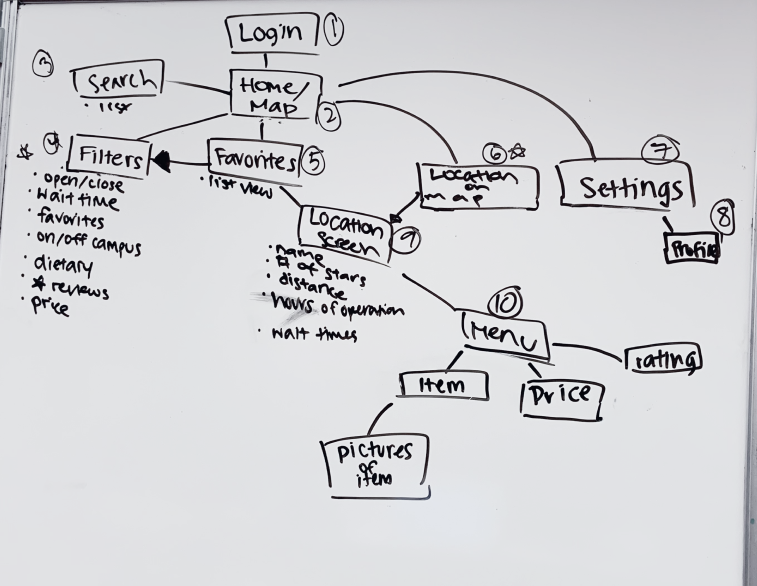 Login
1
3
Search
• list
Home/
Map
2
4
Filters
• open/close
• wait time
• favorites
• on/off campus
• dietary
• # reviews
• price
Favorites
5
• list view
6
Location
on
map
7
Settings
8
Profile
Location
screen
9
• name
• # of stars
• distance
• hours of operation
• wait times
10
Menu
Item
Price
rating
pictures
of
item